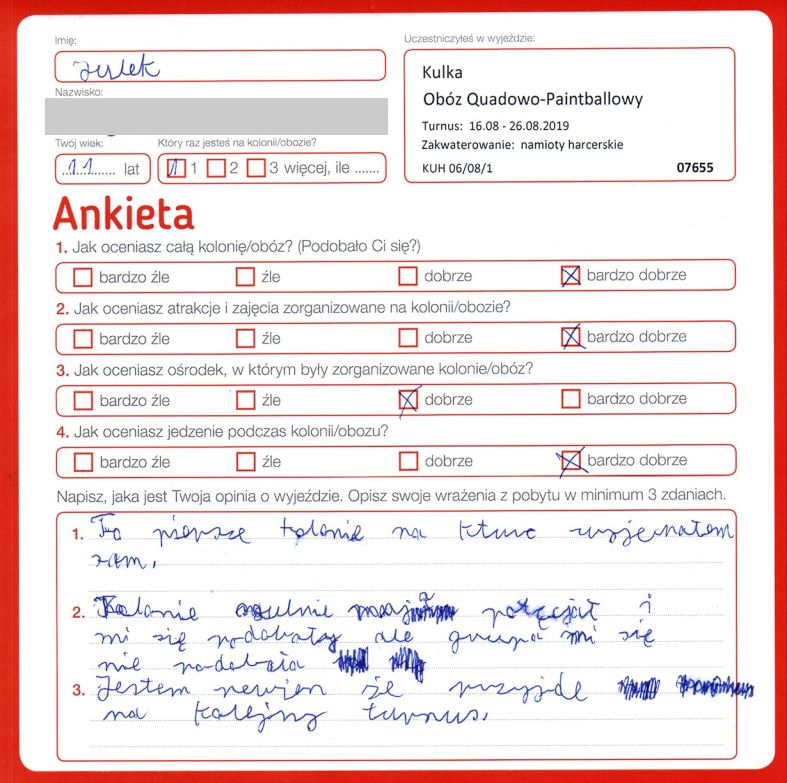 Imię:
Jurek
Nazwisko:
Twój wiek:
11 lat
Który raz jesteś na kolonii/obozie?
1 2 3 więcej, ile .......
Uczestniczyłeś w wyjeździe:
Kulka
Obóz Quadowo-Paintballowy
Turnus: 16.08 - 26.08.2019
Zakwaterowanie: namioty harcerskie
KUH 06/08/1 07655
Ankieta
1. Jak oceniasz całą kolonię/obóz? (Podobało Ci się?)
bardzo źle źle dobrze bardzo dobrze
2. Jak oceniasz atrakcje i zajęcia zorganizowane na kolonii/obozie?
bardzo źle źle dobrze bardzo dobrze
3. Jak oceniasz ośrodek, w którym były zorganizowane kolonie/obóz?
bardzo źle źle dobrze bardzo dobrze
4. Jak oceniasz jedzenie podczas kolonii/obozu?
bardzo źle źle dobrze bardzo dobrze
Napisz, jaka jest Twoja opinia o wyjeździe. Opisz swoje wrażenia z pobytu w minimum 3 zdaniach.
1. To pierwsze kolonie na kture wyjechałem
sam.
2. Kolonie ogulnie mają i
mi się podobały ale grupa mi się
nie podobała
3. Jestem pewien że przyjdę
na kolejny turnus.